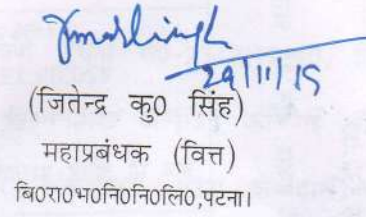 29/11/15
(जितेन्द्र कु0 सिंह)
महाप्रबंधक (वित्त)
बि0रा0भ0नि0नि0लि0,पटना।